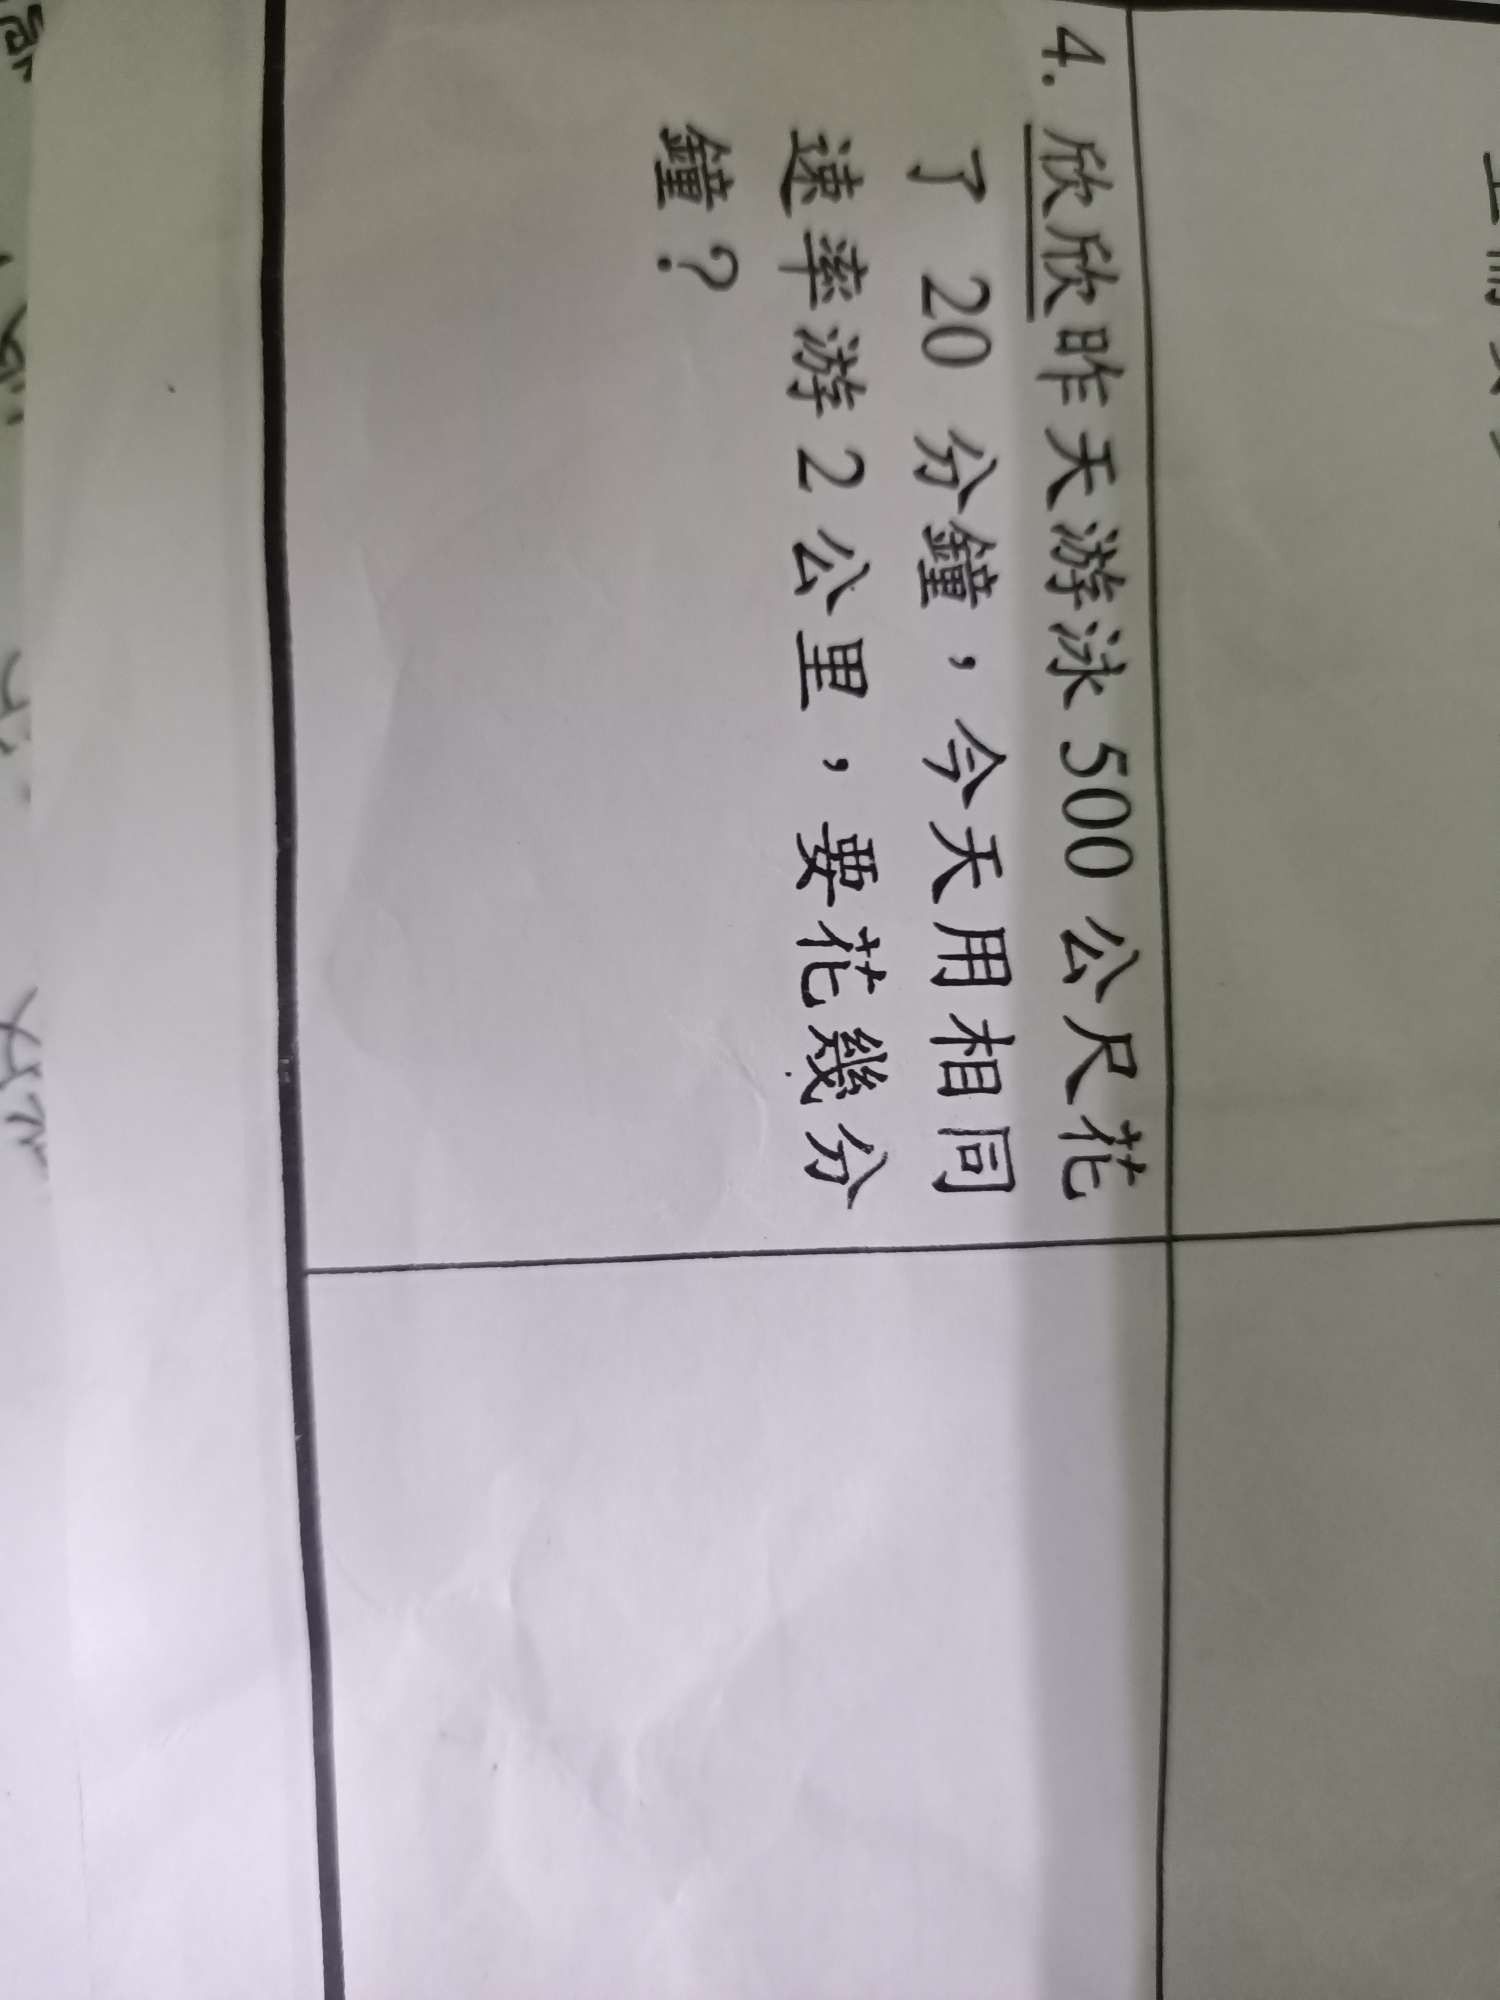 4. 欣欣昨天游泳 500 公尺花
了 20 分鐘，今天用相同
速率游 2 公里，要花幾分
鐘？